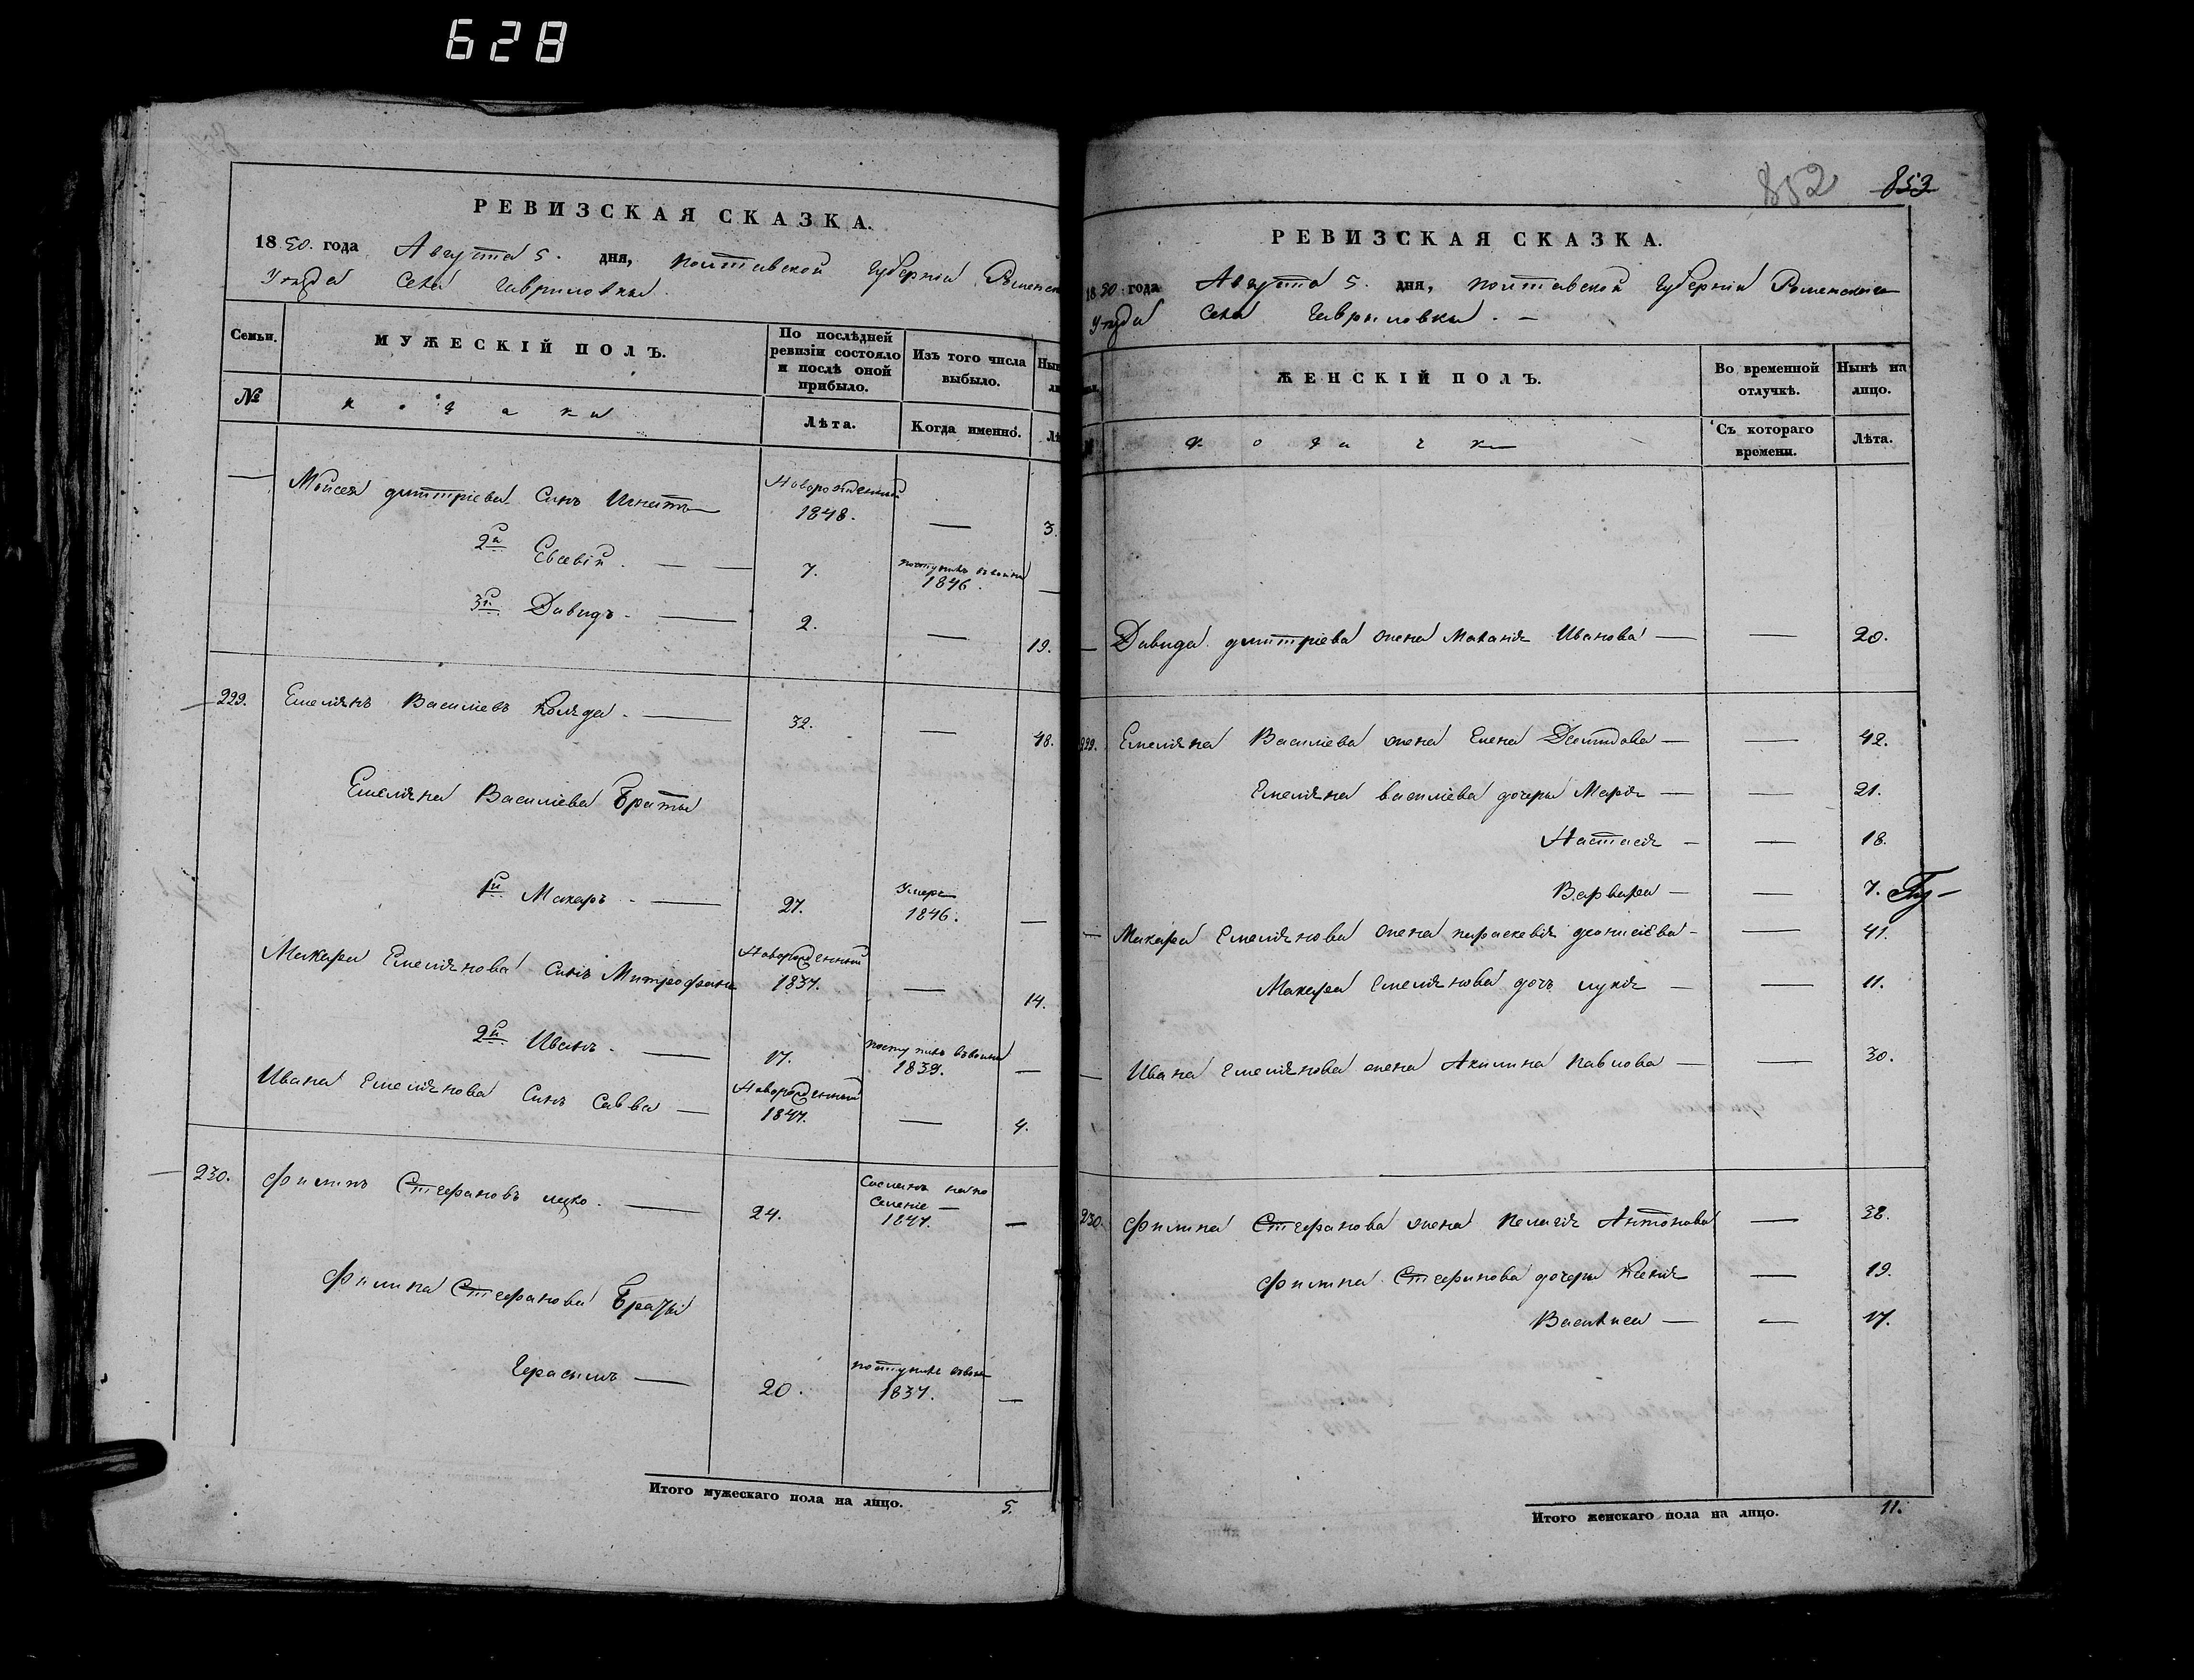 628
РЕВИЗСКАЯ СКАЗКА.
1850. года Августа 5. дня, полтавской губерніи Роменска
Уезда Села Гавриловки.
Семьи.
МУЖЕСКІЙ ПОЛЪ.
По послѣдней ревизіи состояло и послѣ оной прибыло.
Изъ того числа выбыло.
№
козаки
Лѣта.
Когда именно.
— Мойсея дмитріева Синъ Игнатъ — Новорожденный 1848. — 3.
2й Евсевій. — — 7. поступилъ 1846. —
3й Давидъ. — 2. — 19.
229. Емеліянъ Василіевъ Коляда. — 32. — 48.
Емеліяна Василіева Браты
1й Макаръ. — 27. Умре 1846. —
Макара Емеліянова Синъ Митрофанъ Новорожденный 1837. — 14.
2й Иванъ. — 17. поступилъ 1839. —
Ивана Емеліянова Синъ Савва — Новорожденный 1847. — 4.
230. Филипъ Стефановъ — 24. Сосланъ на поселеніе — 1847. —
Филипа Стефанова Браты
Герасимъ — 20. поступилъ 1837. —
Итого мужескаго пола на лицо. 5.
852 853
РЕВИЗСКАЯ СКАЗКА.
1850. года Августа 5. дня, полтавской губерніи Роменскаго
Уезда Села Гавриловки. —
ЖЕНСКІЙ ПОЛЪ.
Во временной отлучкѣ.
Нынѣ на лицо.
Съ котораго времени.
Лѣта.
— Давида дмитріева жена Маланія Иванова — — 20.
229. Емеліяна Василіева жена Елена Демидова — — 42.
Емеліяна василіева дочери Марія — — 21.
Настасія — — 18.
Варвара — — 7.
— Макара Емеліянова жена параскевія діонисіева — — 41.
Макара Емеліянова дочь лукія — — 11.
— Ивана Емеліянова жена Акилина павлова — — 30.
230. Филипа Стефанова жена пелагія Антонова — 38.
Филипа Стефанова дочери Ксенія — 19.
Василиса — — 17.
Итого женскаго пола на лицо. 11.